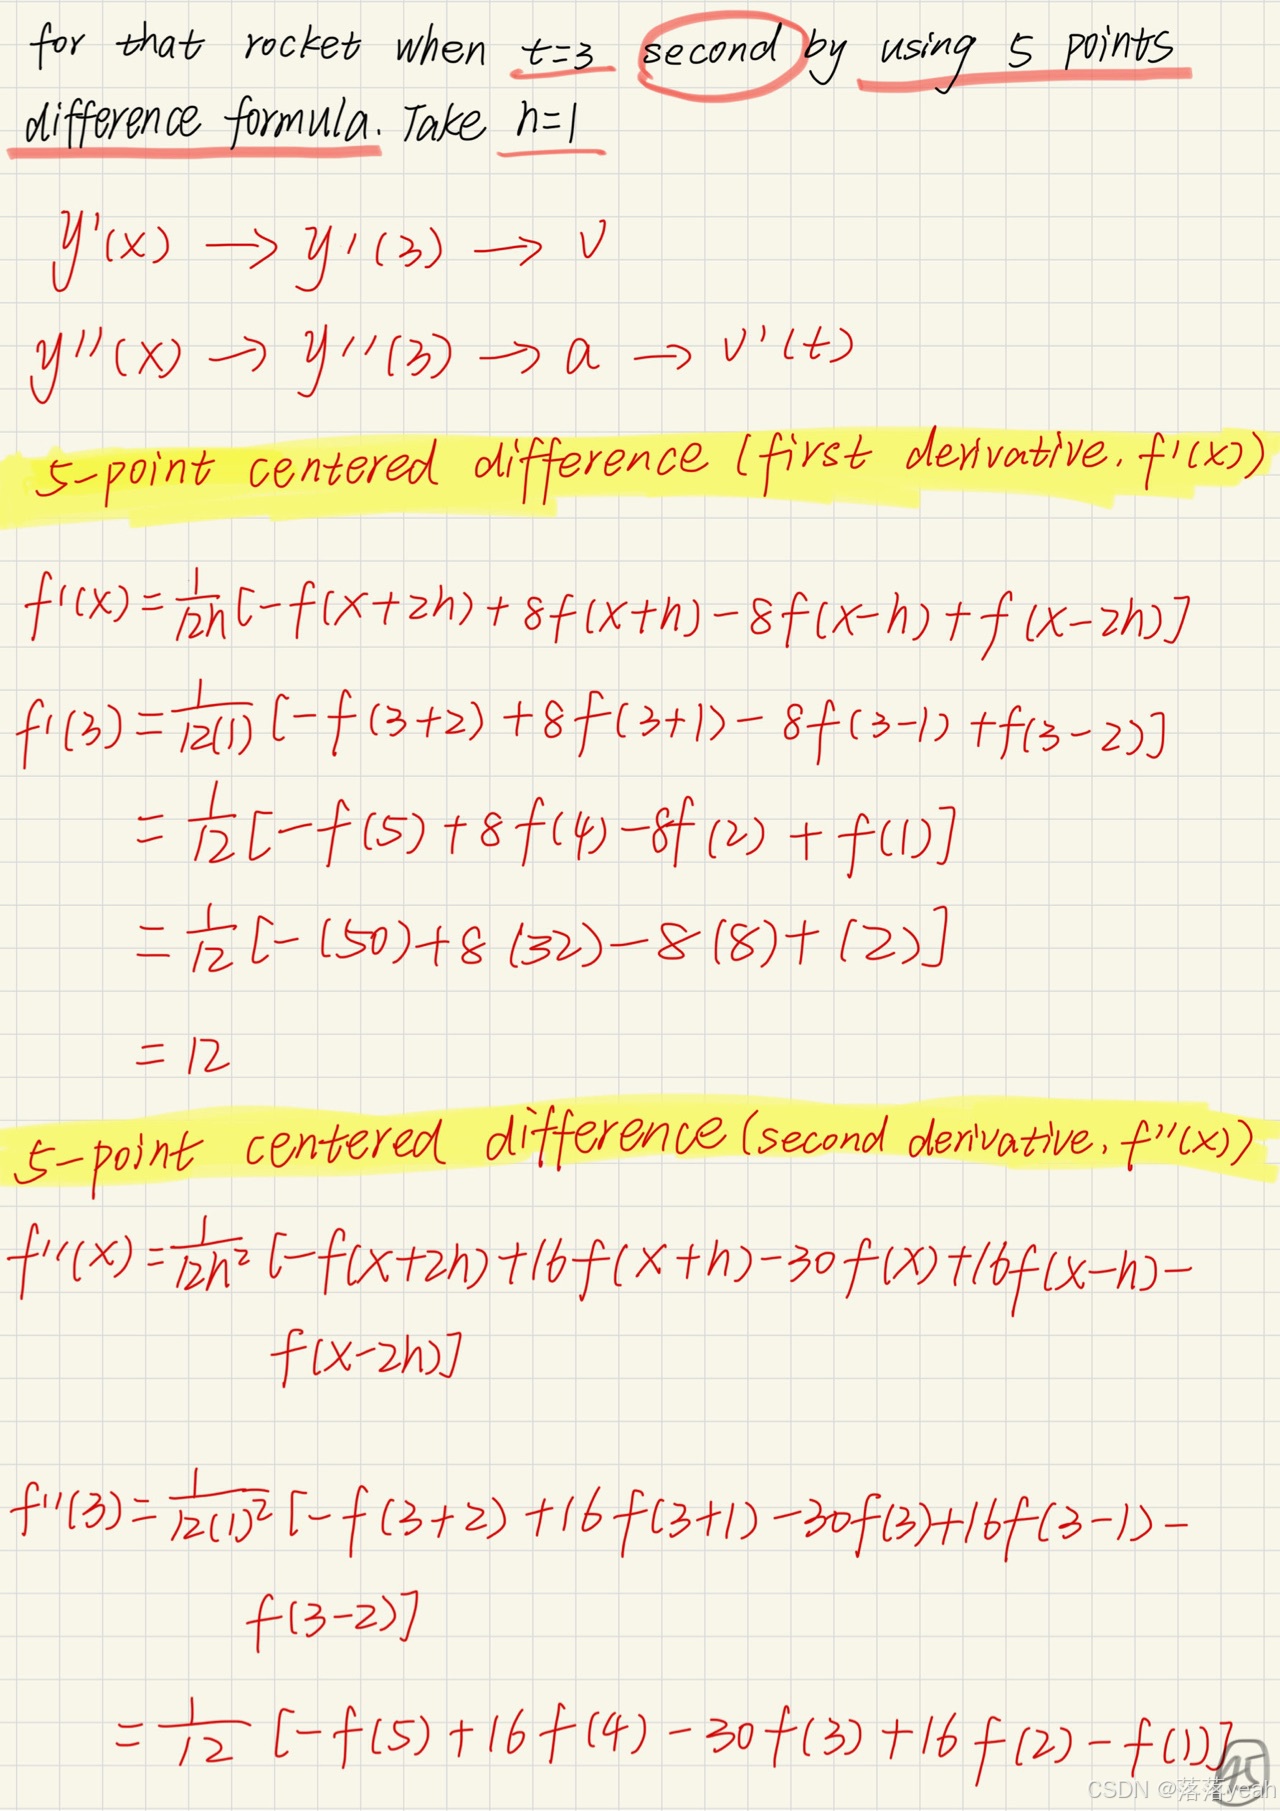 for that rocket when t=3 second by using 5 points
difference formula. Take h=1
y'(x) → y'(3) → v
y''(x) → y''(3) → a → v'(t)
5-point centered difference (first derivative, f'(x))
f'(x) = 1/12h [-f(x+2h) + 8f(x+h) - 8f(x-h) + f(x-2h)]
f'(3) = 1/12(1) [-f(3+2) + 8f(3+1) - 8f(3-1) + f(3-2)]
= 1/12 [-f(5) + 8f(4) - 8f(2) + f(1)]
= 1/12 [-(50) + 8(32) - 8(8) + (2)]
= 12
5-point centered difference (second derivative, f''(x))
f''(x) = 1/12h² [-f(x+2h) + 16f(x+h) - 30f(x) + 16f(x-h) -
f(x-2h)]
f''(3) = 1/12(1)² [-f(3+2) + 16f(3+1) - 30f(3) + 16f(3-1) -
f(3-2)]
= 1/12 [-f(5) + 16f(4) - 30f(3) + 16f(2) - f(1)]
CSDN @落落yeah